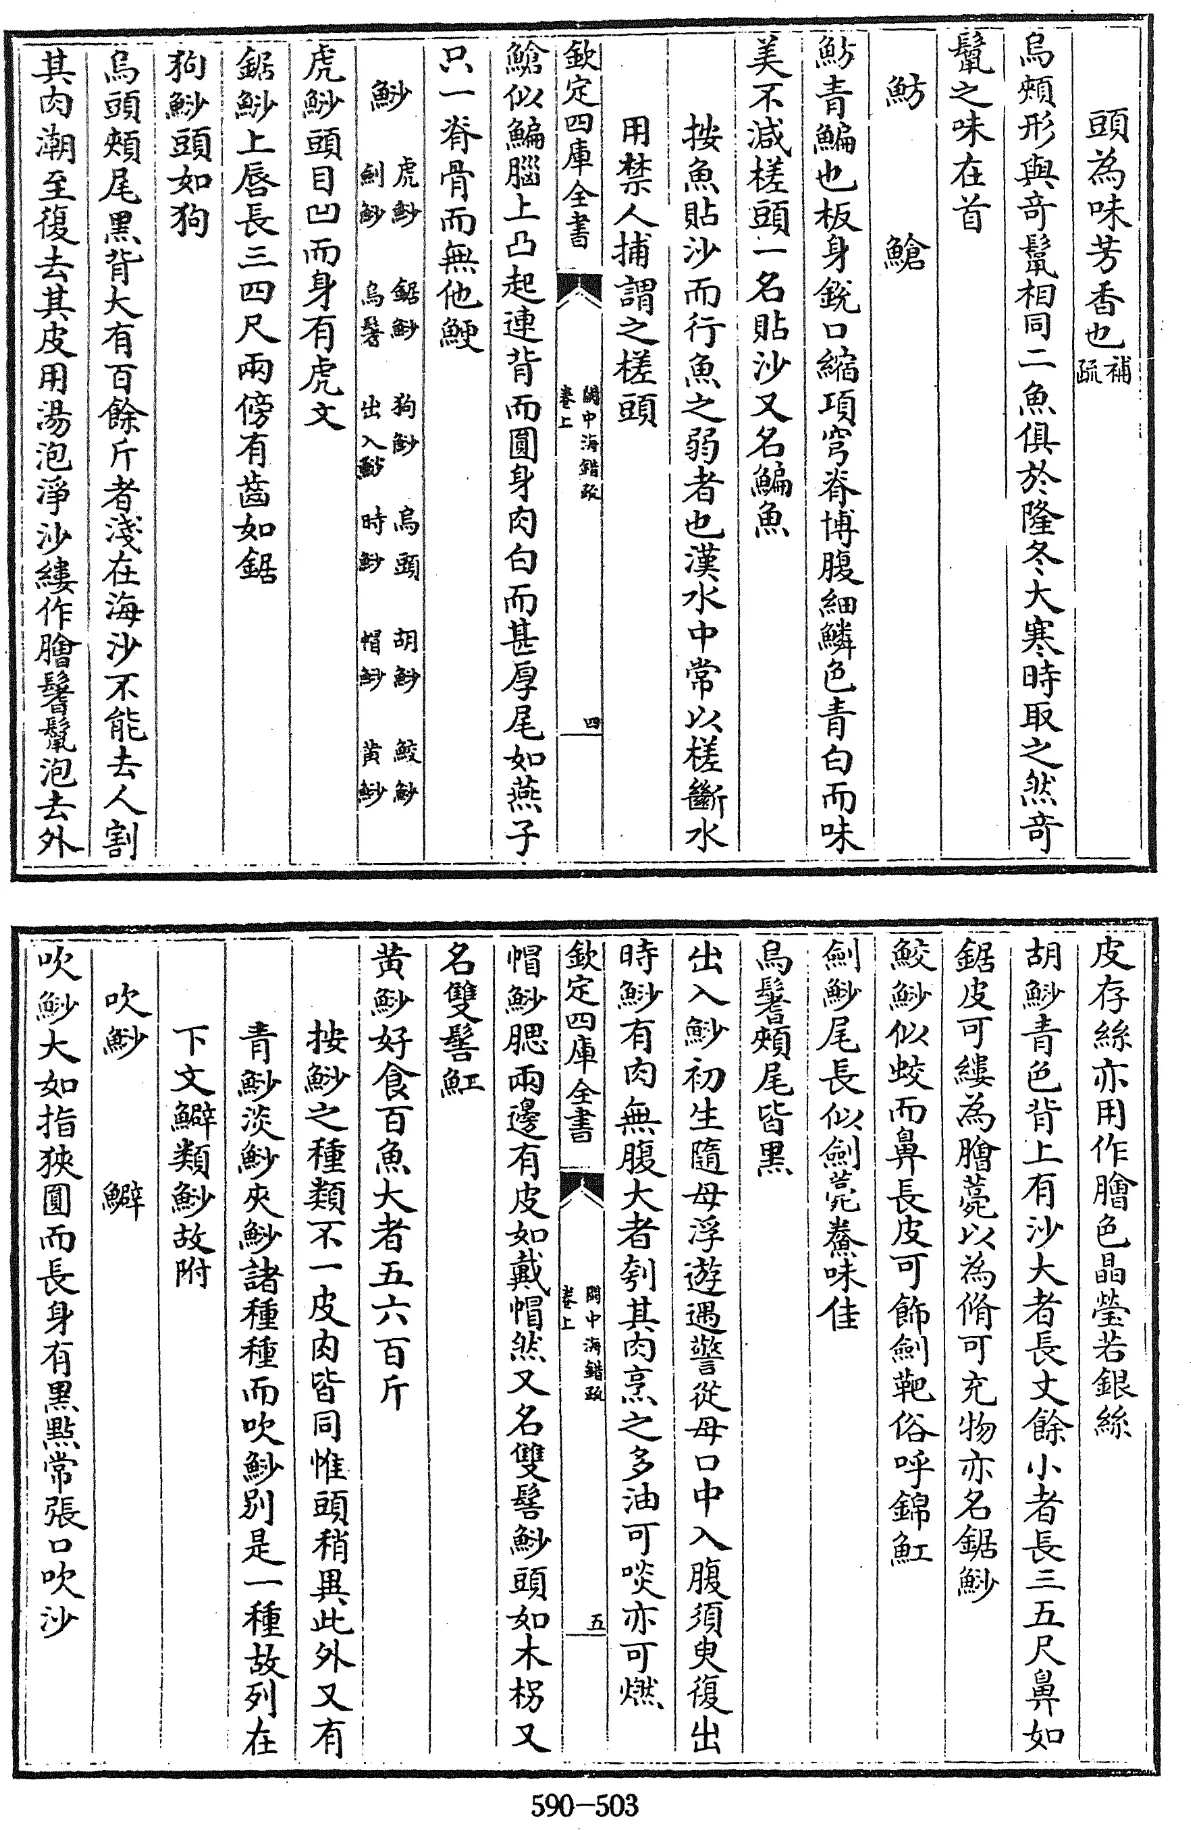 頭為味芳香也補疏
烏頰形與奇鬣相同二魚俱於隆冬大寒時取之然奇
鬣之味在首
魴　鰽
魴青鯿也板身銳口縮項穹脊博腹細鱗色青白而味
美不減槎頭一名貼沙又名鯿魚
按魚貼沙而行魚之弱者也漢水中常以槎斷水
用禁人捕謂之槎頭
欽定四庫全書　閩中海錯疏 卷上　四
鯧似鯿腦上凸起連背而圓身肉白而甚厚尾如燕子
只一脊骨而無他鯁
魦　虎魦　鋸魦　狗魦　烏頭　胡魦　鮫魦
劍魦　烏髻　出入魦　時魦　帽魦　黄魦
虎魦頭目凹而身有虎文
鋸魦上唇長三四尺兩傍有齒如鋸
狗魦頭如狗
烏頭頰尾黑背大有百餘斤者淺在海沙不能去人割
其肉潮至復去其皮用湯泡淨沙縷作膾鬐鬣泡去外
皮存絲亦用作膾色晶瑩若銀絲
胡魦青色背上有沙大者長丈餘小者長三五尺鼻如
鋸皮可縷為膾薧以為脩可充物亦名鋸魦
鮫魦似蛟而鼻長皮可飾劍靶俗呼錦魟
劍魦尾長似劍薧鮝味佳
烏鬐頰尾皆黑
出入魦初生隨母浮遊遇警從母口中入腹須臾復出
時魦有肉無腹大者刳其肉烹之多油可啖亦可燃
欽定四庫全書　閩中海錯疏 卷上　五
帽魦腮兩邊有皮如戴帽然又名雙髻魦頭如木枴又
名雙髻魟
黄魦好食百魚大者五六百斤
按魦之種類不一皮肉皆同惟頭稍異此外又有
青魦淡魦夾魦諸種種而吹魦别是一種故列在
下文鱕類魦故附
吹魦　鱕
吹魦大如指狹圓而長身有黑點常張口吹沙
590-503